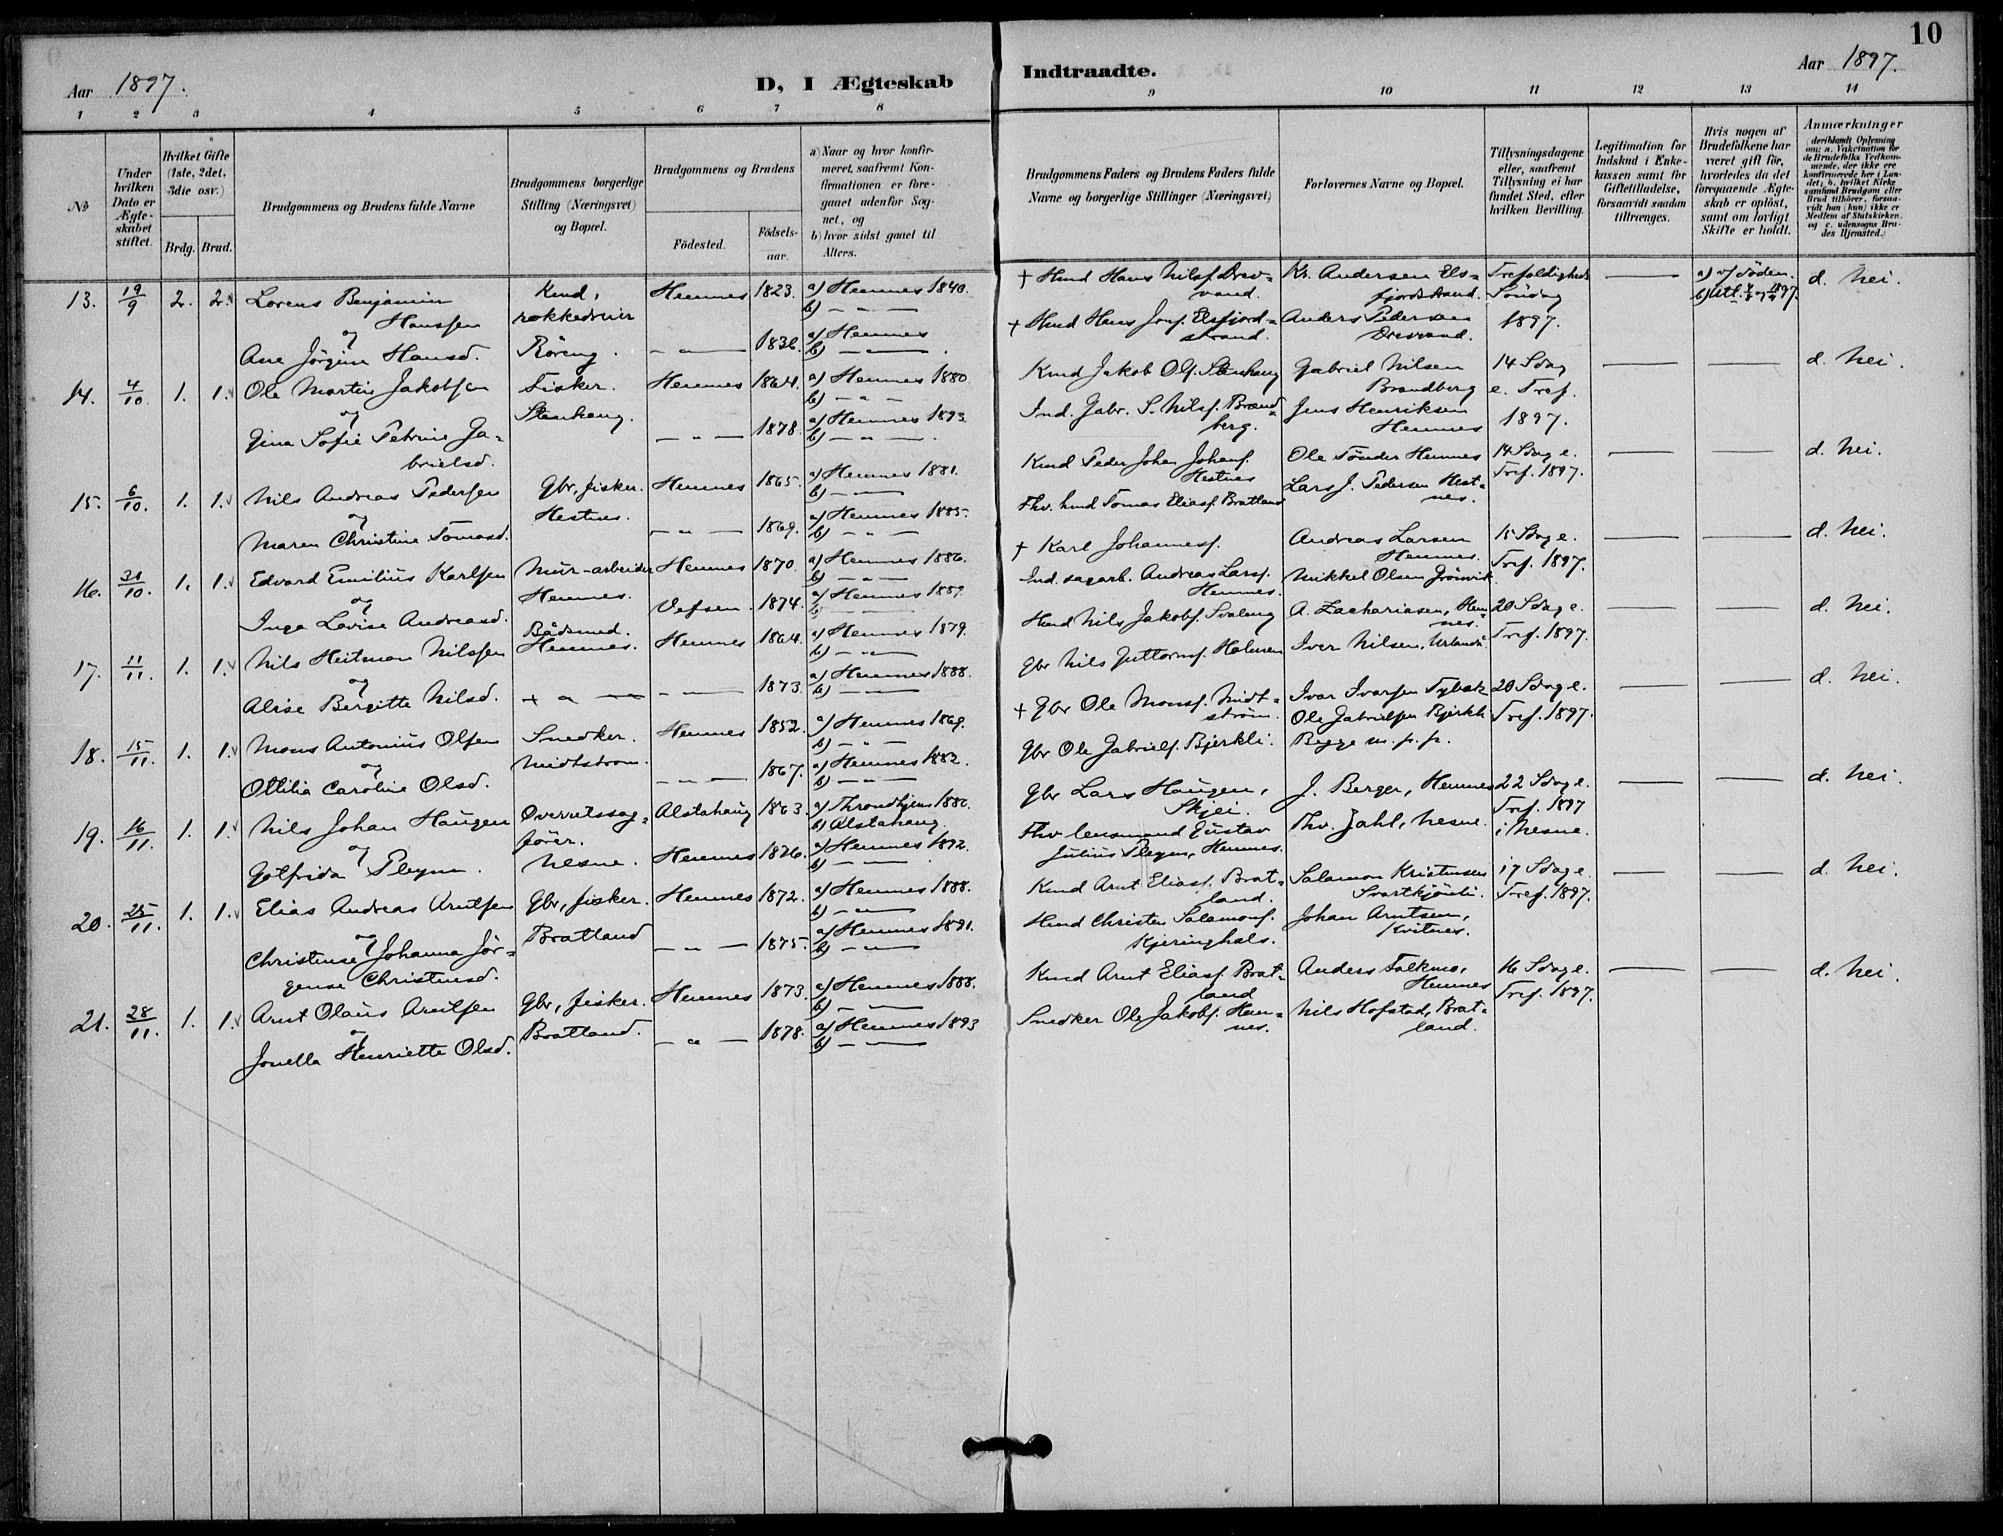 10
Aar 1897.
D, I Ægteskab
Indtraadte.
Aar 1897.
1 2 3 4 5 6 7 8
9 10 11 12 13 14
No
Under hvilken Dato er Ægteskabet stiftet.
Hvilket Gifte (1ste, 2det, 3die osv.)
Brdg. Brud.
Brudgommens og Brudens fulde Navne
Brudgommens borgerlige Stilling (Næringsvei) og Bopæl.
Brudgommens og Brudens
Födested.
Födsels-aar.
a) Naar og hvor konfirmeret, saafremt Konfirmationen er foregaaet udenfor Sognet, og
b) hvor sidst gaaet til Alters.
Brudgommens Faders og Brudens Faders fulde Navne og borgerlige Stillinger (Næringsvei)
Forlovernes Navne og Bopæl.
Tillysningsdagene eller, saafremt Tillysning ei har fundet Sted, efter hvilken Bevilling.
Legitimation for Indskud i Enkekassen samt for Giftetilladelse, forsaavidt saadan tiltrænges.
Hvis nogen af Brudefolkene har været gift för, hvorledes da det foregaaende Ægteskab er oplöst, samt om lovligt Skifte er holdt.
Anmærkninger
(deriblandt Oplysning om: a. Vakcination for de Brudefolks Vedkommende, der ikke ere konfirmerede her i Landet; b. hvilket Kirkesamfund Brudgom eller Brud tilhörer, forsaavidt han (hun) ikke er Medlem af Statskirken, og c. udensogns Brudes Hjemsted.)
13. 19/9 2. 2. Lorens Benjamin Hanssen
og
Ane Jørgine Hansd.
rokkedreier
Røreng.
Hemnes 1823. a) Hemnes 1840. b) — " —
— " — 1836. a) Hemnes b) — " —
+ Hmd Hans Nilsf. Drevvand.
+ Hmd Hans Jonf. Elsfjordstrand.
Kr. Andersen Elsfjordstrand.
Anders Pedersen Drevvand.
Trefoldigheds Söndag 1897.
d. nei.
14. 4/10 1. 1. Ole Martin Jakobsen
og
Gina Sofie Petrine Gabrielsd.
Fisker.
Stenhaug.
Hemnes 1864. a) Hemnes 1880 b) — " —
— " — 1878. a) Hemnes 1893. b) — " —
Kmd Jakob Olf. Stenhaug
Ind. Gabr. S. Nilsf. Brandberg.
Gabriel Nilsen Brandberg
Jens Henriksen Hemnes
14 Sdag e. Tref. 1897.
d. nei.
15. 6/10. 1. 1. Nils Andreas Pedersen
og
Maren Christine Tomasd.
Gbr, fisker.
Hestnes.
Hemnes 1865. a) Hemnes 1881. b) — " —
— " — 1869. a) Hemnes 1885. b) — " —
Kmd Peder Johan Johanf. Hestnes
Fhv. hmd Tomas Eliasf. Bratland
Ole Tönder Hemnes
Lars J. Pedersen Hestnes.
14 Sdag e. Tref. 1897.
d. nei.
16. 31/10. 1. 1. Edvard Emilius Karlsen
og
Inga Lovise Andreasd.
Mur-arbeider
Hemnes.
Hemnes 1870. a) Hemnes 1886. b) — " —
Vefsen. 1874. a) Hemnes 1889. b) — " —
+ Karl Johannesf.
Ind. sagarb. Andreas Larsf. Hemnes.
Andreas Larsen Hemnes.
Mikkel Olsen Grönvik
15 Sdag e. Tref. 1897.
d. nei.
17. 11/11. 1. 1. Nils Heitman Nilssen
og
Alise Bergitte Nilsd.
Bådsmed.
Hemnes.
Hemnes 1864. a) Hemnes 1879. b) — " —
— " — 1873. a) Hemnes 1888. b) — " —
Hmd Nils Jakobf. Svaleng
Gbr Nils Guttormf. Holmen
A. Zachariasen, Hemnes.
Iver Nilsen,
20 Sdag e. Tref. 1897.
d. nei.
18. 15/11. 1. 1. Mons Antonius Olsen
og
Ottilia Caroline Olsd.
Snedker.
Midtstrøm.
Hemnes 1852. a) Hemnes 1869. b) — " —
— " — 1867. a) Hemnes 1882. b) — " —
+ Gbr Ole Monsf. Midtström.
Gbr Ole Gabrielf. Bjerkli.
Ivar Ivarsen
Ole Gabrielsen Bjerkli
Begge m. p. p.
20 Sdag e. Tref. 1897.
d. nei.
19. 16/11. 1. 1. Nils Johan Haugen
og
Golfrida Pleym.
Overretssagförer.
Nesne.
Alstahaug 1863. a) Throndhjem 1880. b) Alstahaug.
Hemnes 1876. a) Hemnes 1892. b) — " —
Gbr Lars Haugen, Skjei.
Fhv lensmand Gustav Julius Pleym, Hemnes.
J. Berger, Hemnes
Thv. Zahl, Nesne.
22 Sdag e. Tref. 1897 i Nesne.
d. nei.
20. 25/11. 1. 1. Elias Andreas Arntsen
og
Christense Johanna Jørgense Christensd.
Gbr, fisker.
Bratland
Hemnes 1872. a) Hemnes 1888. b) — " —
— " — 1875. a) Hemnes 1891. b) — " —
Kmd Arnt Eliasf. Bratland.
Hmd Christen Salamonf. Kjeringhals.
Salamon Kristensen
Johan Arntsen, Kvitnes.
17 Sdag e. Tref. 1897.
d. nei.
21. 28/11. 1. 1. Arnt Olaus Arntsen
og
Jonella Henriette Olsd.
Gbr, fisker.
Bratland.
Hemnes 1873. a) Hemnes 1888. b) — " —
— " — 1878. a) Hemnes 1893 b) — " —
Kmd Arnt Eliasf. Bratland
Snedker Ole Jakobf. Hemnes.
Anders Falkmo, Hemnes
Nils Hofstad, Bratland.
16 Sdag e. Tref. 1897.
d. nei.